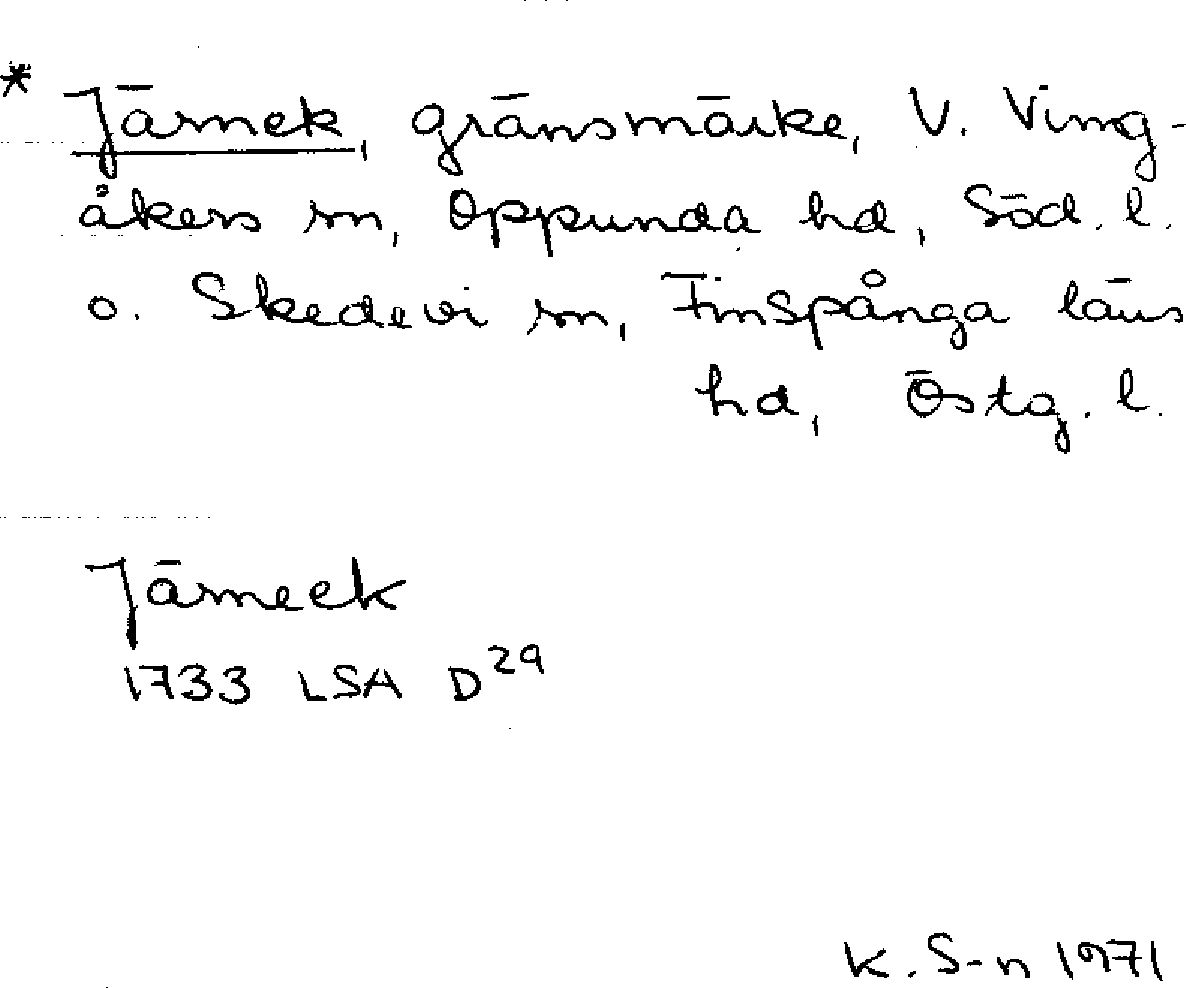 * Järnek, gränsmärke, V. Ving-
åkers sn, Oppunda hd, Söd. l.
o. Skedevi sn, Finspånga läns
hd, Östg. l.
Järneek
1733 LSA D29
K. S-n 1971